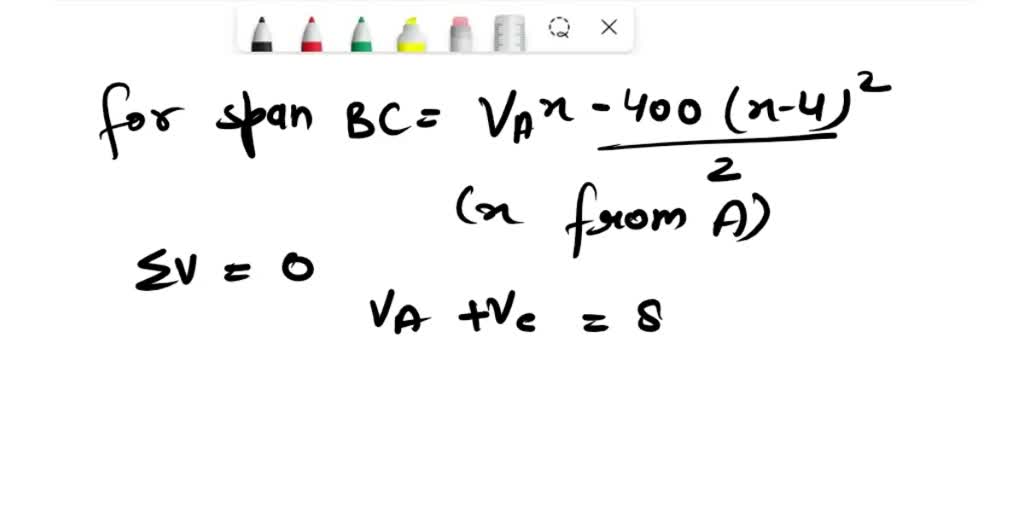 for span BC = VAx - 400 (x-4)²
2
(x from A)
ΣV = 0
VA + Vc = 8